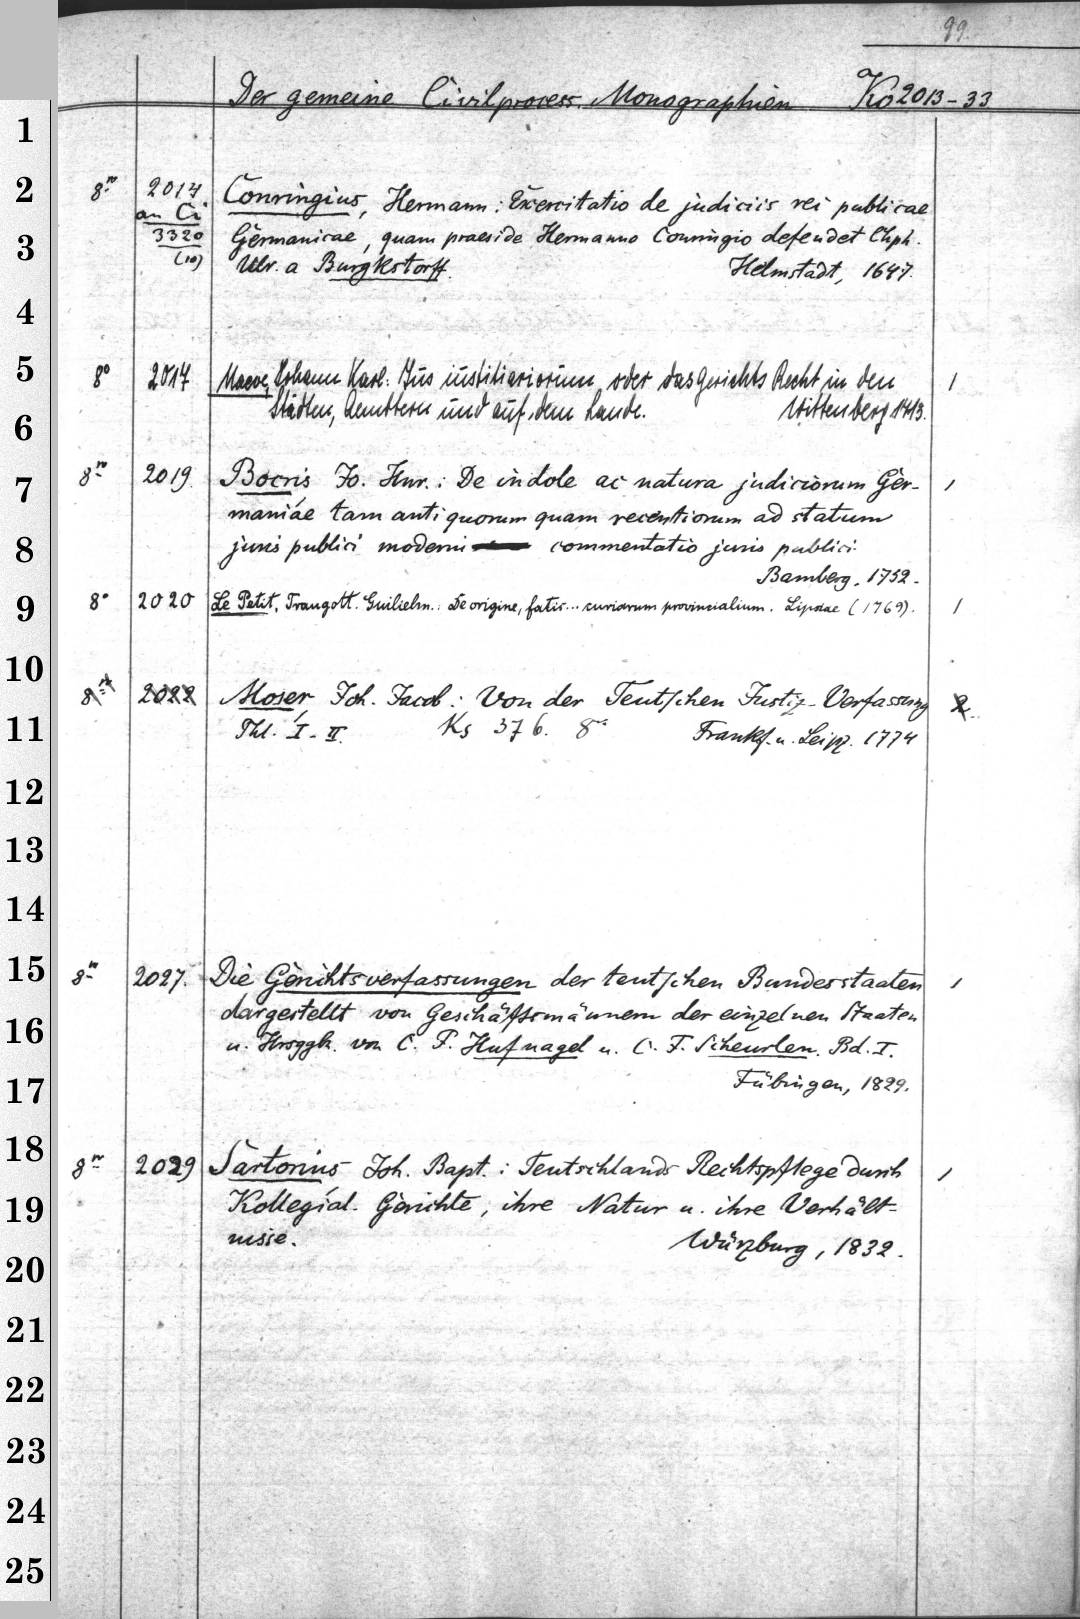 99.
Der gemeine Civilprocess. Monographien Ko 2013-33
8ᵛᵒ 2014 Conringius, Hermann: Exercitatio de judiciis rei publicae
an Ci 3320 (10) Germanicae, quam praeside Hermanno Conringio defendet Chph.
Ulr. a Burgkstorff. Helmstadt, 1647.
8° 2017 Johann Karl. Jus iustitiariorum oder das Gerichts Recht in den 1
Städten, Aemttern und auf dem Lande. Wittenberg 1713.
8ᵛᵒ 2019 Bocris Jo. Hnr.: De indole ac natura judiciorum Ger- 1
maniae tam antiquorum quam recentiorum ad statum
juris publici moderni commentatio juris publici.
Bamberg, 1752.
8° 2020 Le Petit, Traugott. Guilielm.: De origine, fatis... curiarum provincialium. Lipsiae (1769). 1
8ᵛᵒ 2022 Moser, Joh. Jacob: Von der Teutschen Justiz-Verfassung 2.
Thl. I-II. Ks 376. 8° Frankf. u. Leipz. 1774
8ᵛᵒ 2027. Die Gerichtsverfassungen der teutschen Bundesstaaten 1
dargestellt von Geschäftsmännern der einzelnen Staaten
u. Hrsggb. von C. F. Hufnagel u. C. F. Scheurlen. Bd. I.
Tübingen, 1829.
8ᵛᵒ 2029 Sartorius Joh. Bapt.: Teutschlands Rechtspflege durch 1
Kollegial. Gerichte, ihre Natur u. ihre Verhält=
nisse. Würzburg, 1832.
1
2
3
4
5
6
7
8
9
10
11
12
13
14
15
16
17
18
19
20
21
22
23
24
25